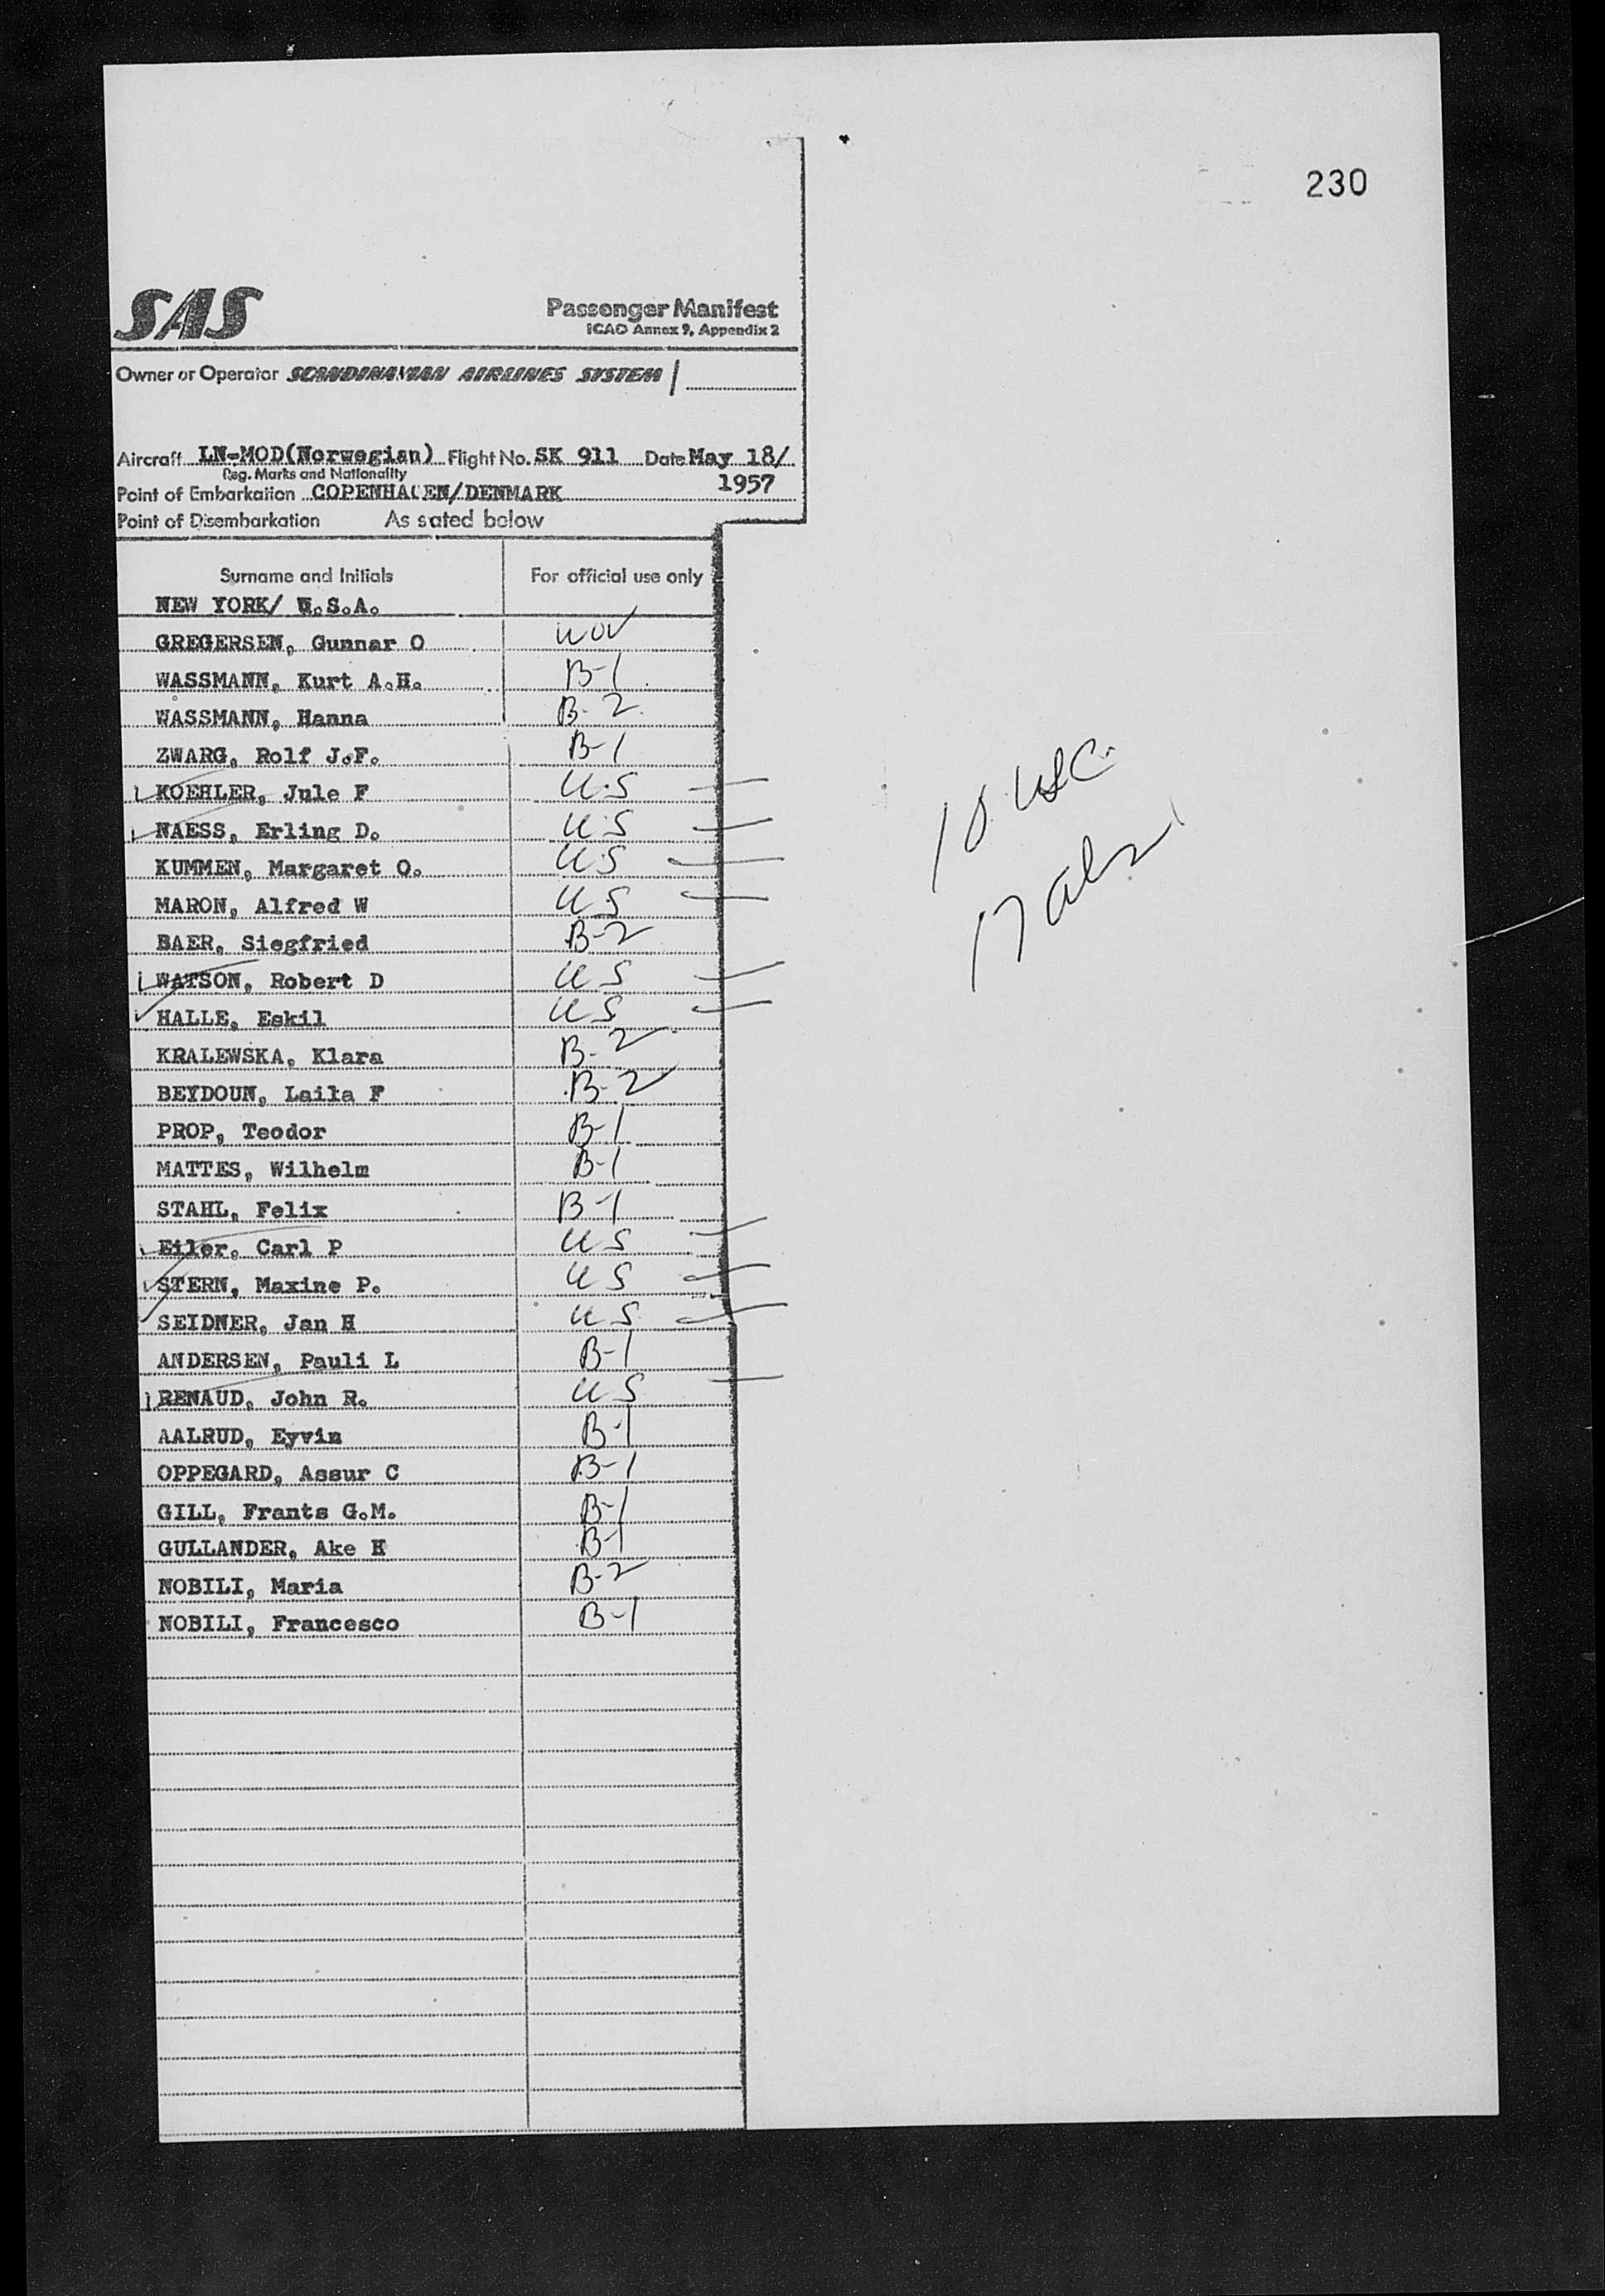 230
SAS
Passenger Manifest
ICAO Annex 9, Appendix 2
Owner or Operator SCANDINAVIAN AIRLINES SYSTEM /
Aircraft LN-MOD(Norwegian) Flight No. SK 911 Date May 18/
Reg. Marks and Nationality
1957
Point of Embarkation COPENHAGEN/DENMARK
Point of Disembarkation As sated below
Surname and Initials For official use only
NEW YORK/ U.S.A.
GREGERSEN, Gunnar O
WASSMANN, Kurt A.H. B-1
WASSMANN, Hanna B-2
ZWARG, Rolf J.F. B-1
KOEHLER, Jule F U.S
NAESS, Erling D. U.S
KUMMEN, Margaret O. U.S
MARON, Alfred W U S
BAER, Siegfried B-2
WATSON, Robert D U S
HALLE, Eskil U S
KRALEWSKA, Klara B-2
BEYDOUN, Laila F B-2
PROP, Teodor B-1
MATTES, Wilhelm B-1
STAHL, Felix B-1
Eiler, Carl P U S
STERN, Maxine P. U S
SEIDNER, Jan H U S
ANDERSEN, Pauli L B-1
RENAUD, John R. U S
AALRUD, Eyvin B-1
OPPEGARD, Assur C B-1
GILL, Frants G.M. B-1
GULLANDER, Ake H B-1
NOBILI, Maria B-2
NOBILI, Francesco B-1
10 USC.
17 aln